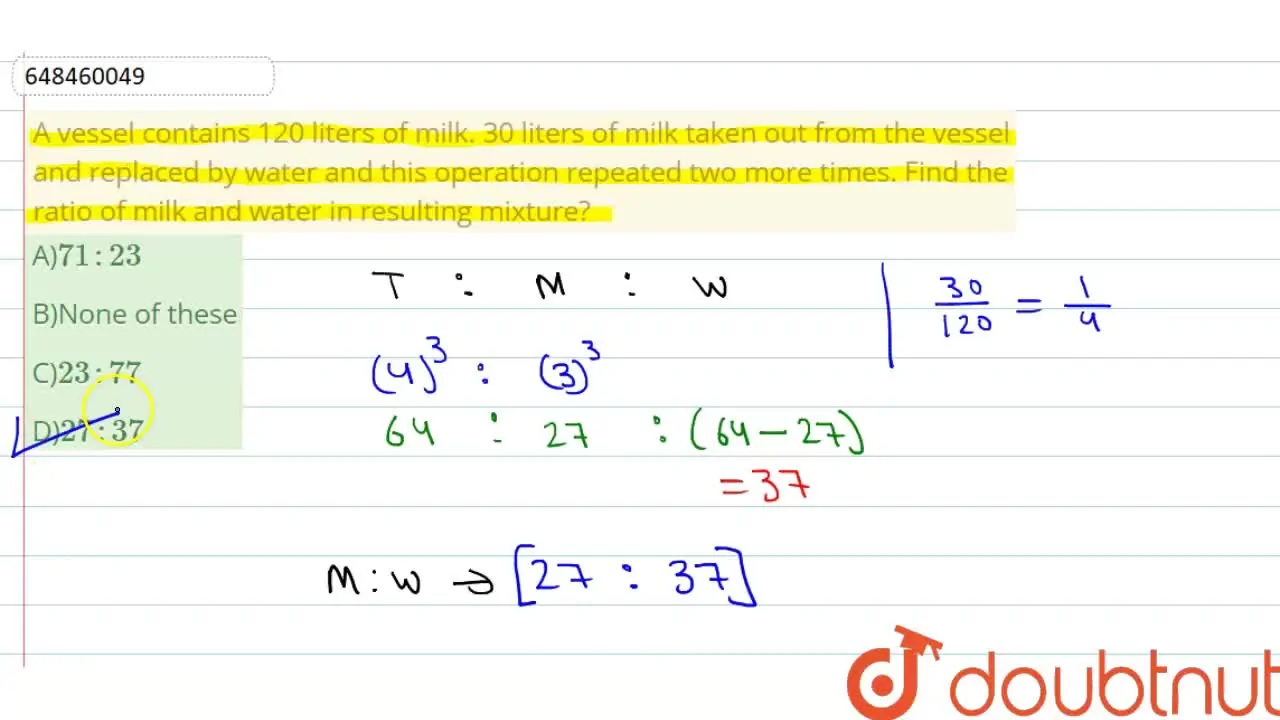 648460049
A vessel contains 120 liters of milk. 30 liters of milk taken out from the vessel
and replaced by water and this operation repeated two more times. Find the
ratio of milk and water in resulting mixture?
A)71 : 23
B)None of these
C)23 : 77
D)27 : 37
T : M : W
30/120 = 1/4
(4)^3 : (3)^3
64 : 27 : (64-27)
= 37
M : W → [27 : 37]
doubtnut